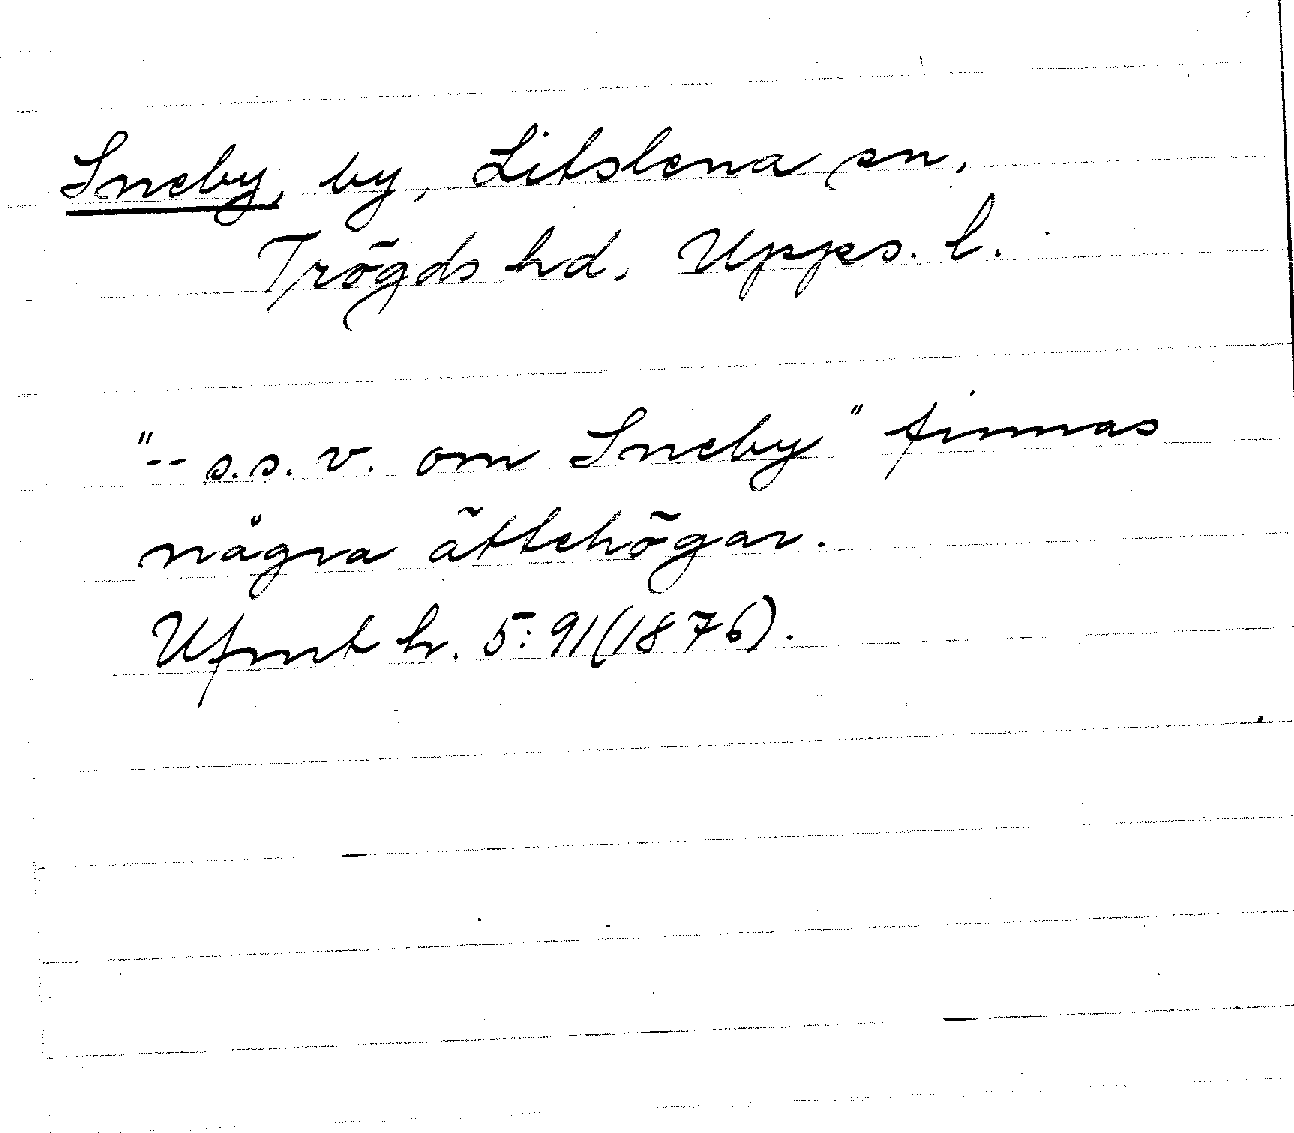 Sneby, by, Litslena sn,
Trögds hd. Upps. l.
"-- s.s.v. om Sneby" finnas
några ättehögar.
Ufmt h. 5:91(1876).